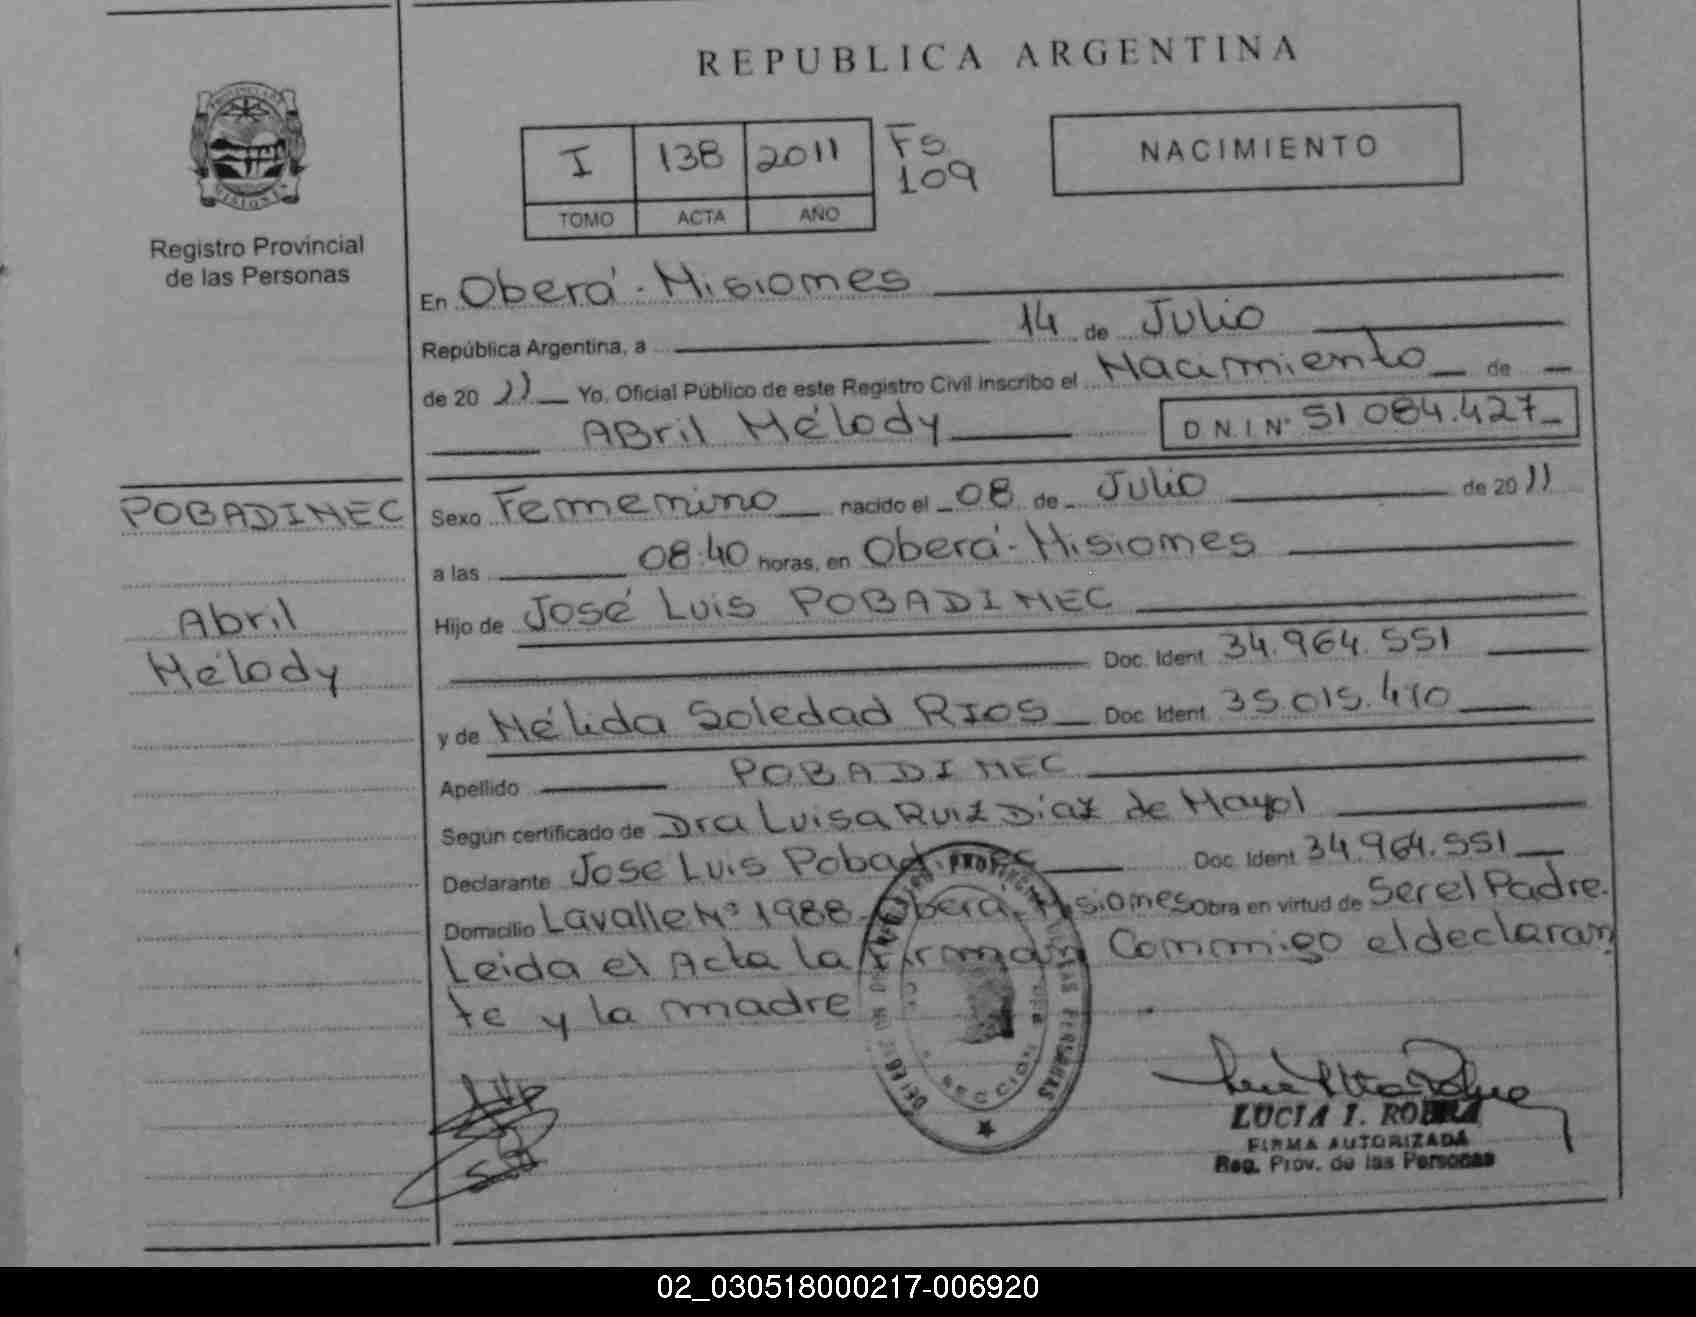 REPUBLICA ARGENTINA
I 138 2011 Fs 109
TOMO ACTA AÑO
NACIMIENTO
Registro Provincial
de las Personas
En Oberá - Misiones
República Argentina, a 14 de Julio
de 2011 Yo, Oficial Público de este Registro Civil inscribo el Nacimiento de
Abril Mélody D N.I N° 51.084.427
POBADINEC
Abril
Mélody
Sexo Femenino nacido el 08 de Julio de 2011
a las 08:40 horas, en Oberá - Misiones
Hijo de José Luis POBADINEC
Doc. Ident. 34.964.551
y de Nélida Soledad RIOS Doc. Ident. 35.015.410
Apellido POBADINEC
Según certificado de Dra Luisa Ruiz Díaz de Mayol
Declarante José Luis Pobadinec Doc. Ident. 34.964.551
Domicilio Lavalle N° 1988 - Oberá - Misiones Obra en virtud de Ser el Padre.
Leida el Acta la Firman Conmigo el declaran
te y la madre
LUCIA I.
FIRMA AUTORIZADA
Reg. Prov. de las Personas
02_030518000217-006920